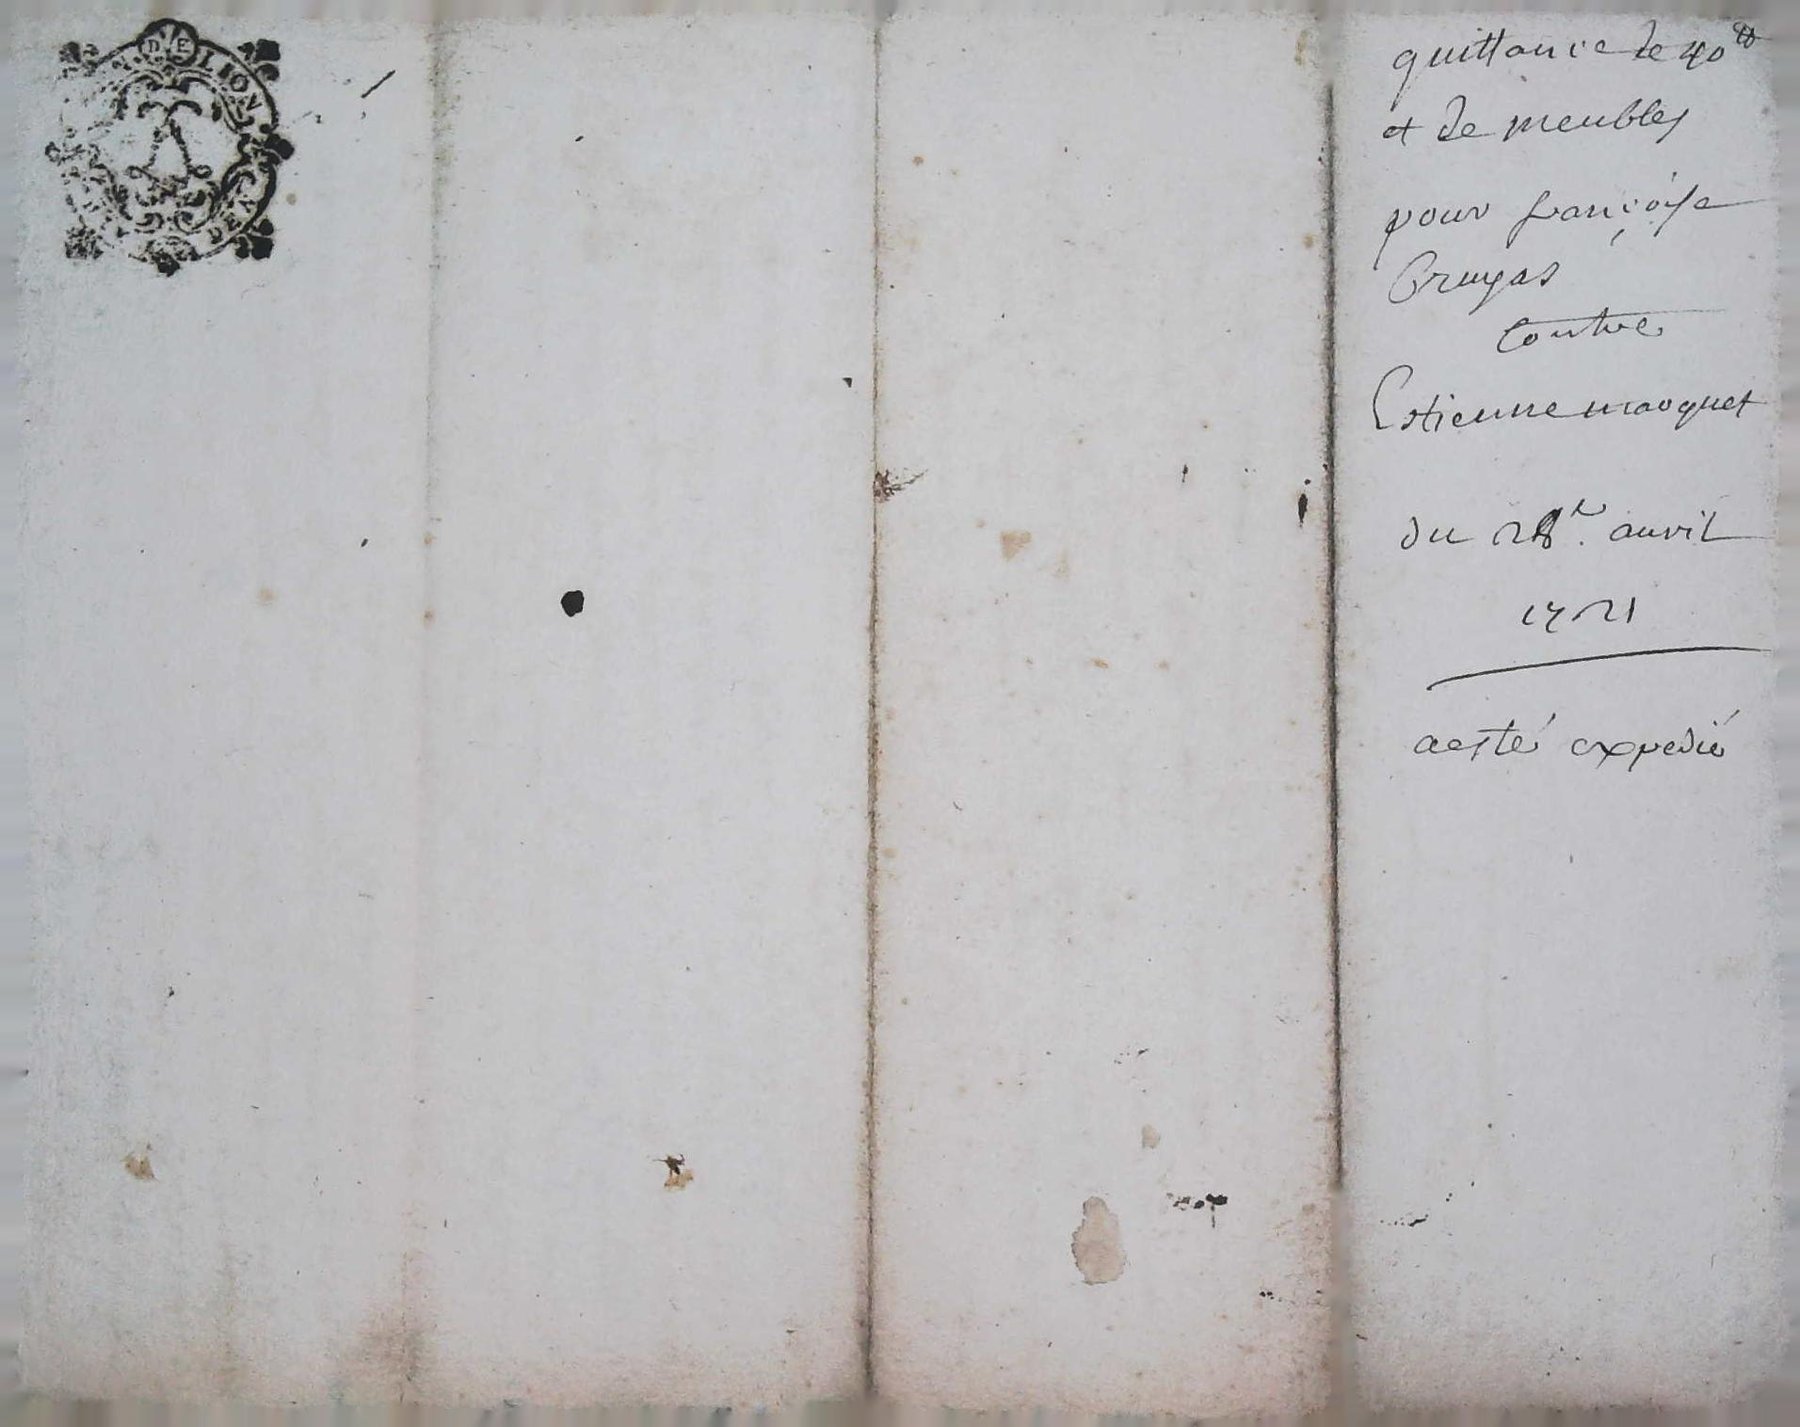 DE LION
DEN
quittance de 40 ₶
et de meubles
pour françoise
Bruyas
Contre
Estienne marquet
du 28e. auril
1721
a esté expedié